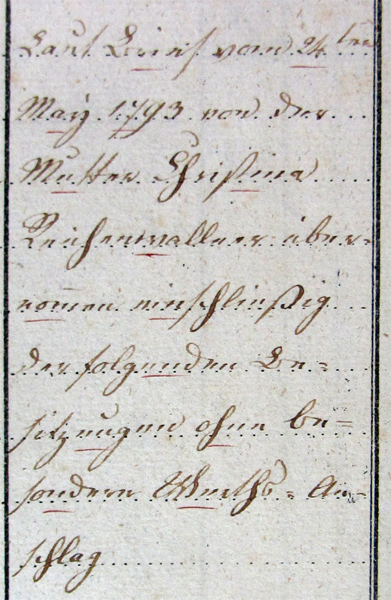 Laut Brief vom 24ten
May 1793 von der
Mutter Christina
Reichenwallner über=
nomen einschließig
der folgenden Be=
sitzungen ohne be=
sondern Werths=An=
schlag